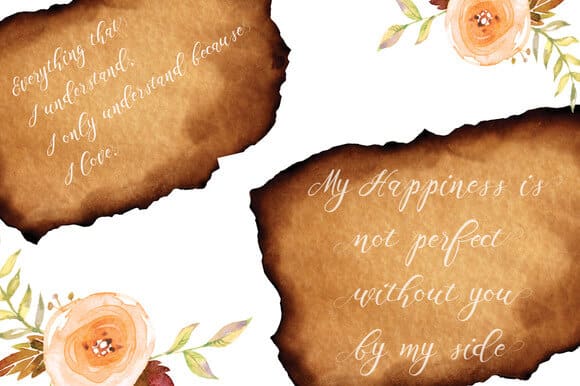 Everything that
I understand,
I only understand because
I love.
My Happiness is
not perfect
without you
by my side